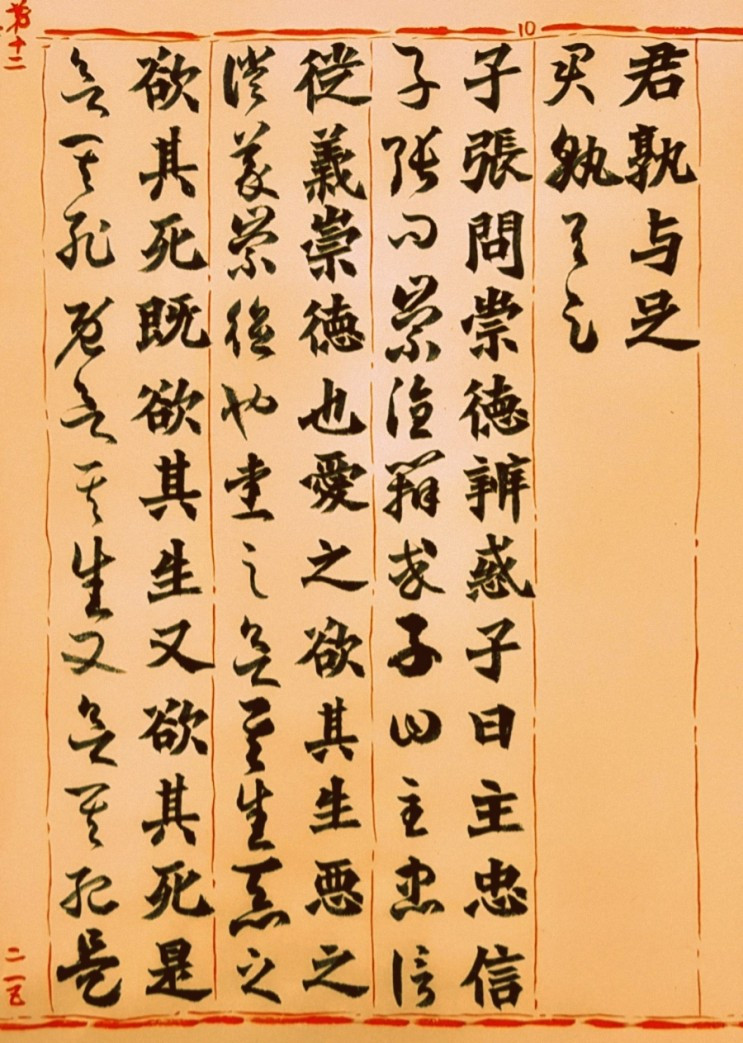 10
君孰与足
君孰与足
子張問崇徳辨惑子曰主忠信
子張問崇徳辨惑子曰主忠信
徙義崇徳也愛之欲其生悪之
徙義崇徳也愛之欲其生悪之
欲其死既欲其生又欲其死是
欲其死既欲其生又欲其死是
第十二
二一五